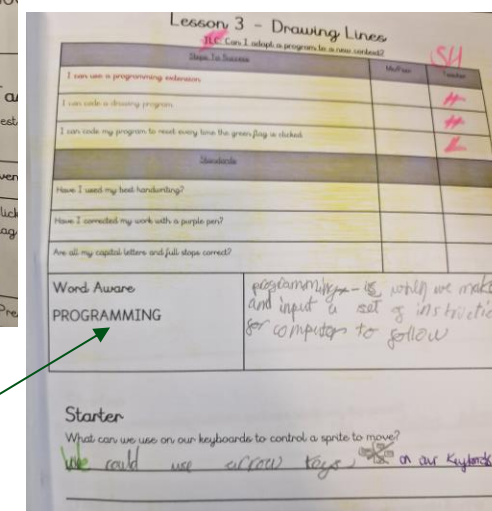 Lesson 3 - Drawing Lines
TLC: Can I adapt a program to a new context?
SH
Steps To Success
Me/Peer
Teacher
I can use a programming extension
I can code a drawing program
I can code my program to reset every time the green flag is clicked
Standards
Have I used my best handwriting?
Have I corrected my work with a purple pen?
Are all my capital letters and full stops correct?
Word Aware
PROGRAMMING
programming - is when we make
and input a set of instructio
for computer to follow
Starter
What can we use on our keyboards to control a sprite to move?
We could use arrow keys, on our keyboards